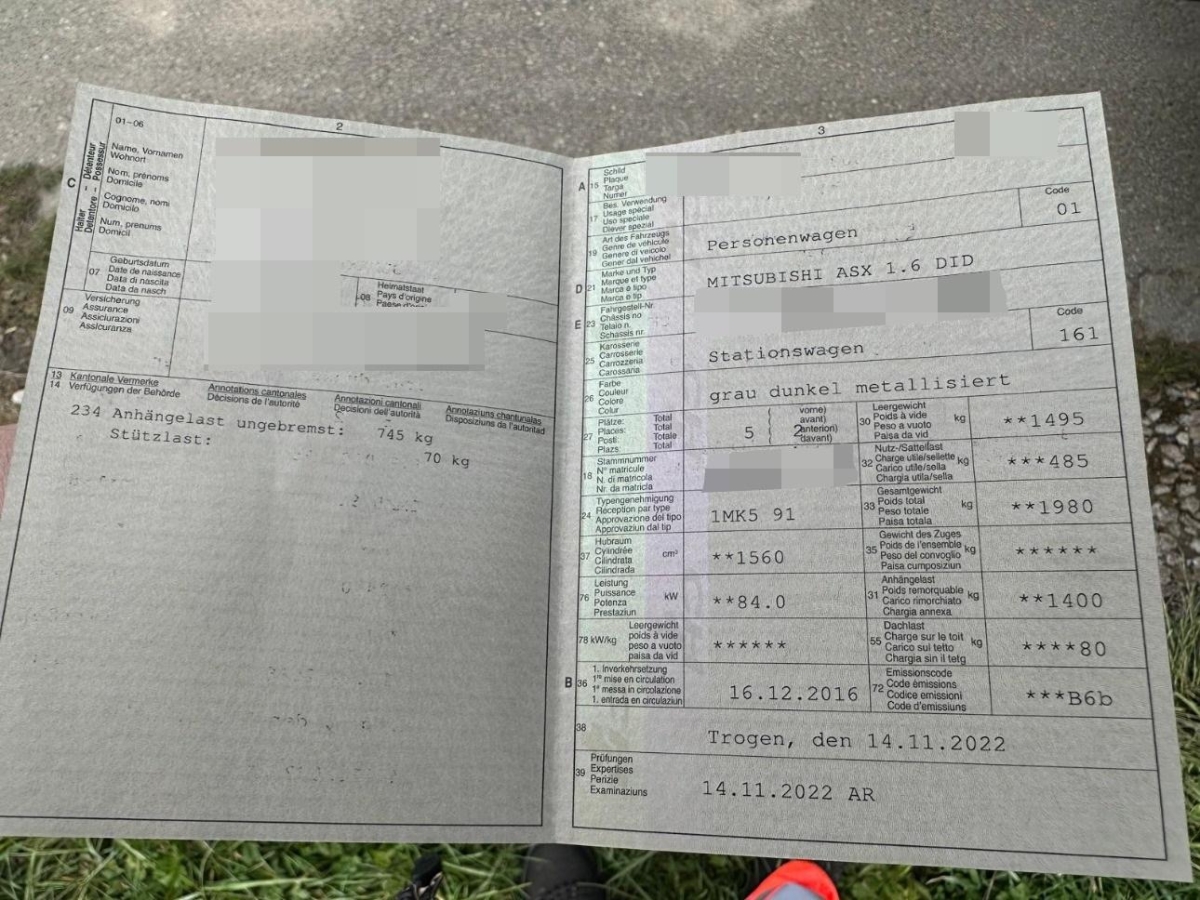 2
01-06
C
Halter - Détenteur
Detentore - Possessur
Name, Vornamen
Wohnort
Nom, prénoms
Domicile
Cognome, nomi
Domicilo
Num, prenums
Domicil
07
Geburtsdatum
Date de naissance
Data di nascita
Data da nasch
08
Heimatstaat
Pays d'origine
09
Versicherung
Assurance
Assicurazioni
Assicuranza
13 Kantonale Vermerke
14 Verfügungen der Behörde
Annotations cantonales
Décisions de l'autorité
Annotazioni cantonali
Decisioni dell'autorità
Annotaziuns chantunales
Disposiziuns da l'autoritad
234 Anhängelast ungebremst: 745 kg
Stützlast: 70 kg
3
A 15
Schild
Plaque
Targa
Numer
17
Bes. Verwendung
Usage spécial
Uso speciale
Diever spezial
Code
19
Art des Fahrzeugs
Genre de véhicule
Genere di veicolo
Gener dal vehichel
Personenwagen
01
D 21
Marke und Typ
Marque et type
Marca e tipo
Marca e tip
MITSUBISHI ASX 1.6 DID
E 23
Fahrgestell-Nr.
Châssis no
Telaio n.
Schassis nr.
Code
25
Karosserie
Carrosserie
Carrozzeria
Carossaria
Stationswagen
161
26
Farbe
Couleur
Colore
Colur
grau dunkel metallisiert
27
Plätze: Total
Places: Total
Posti: Totale
Plazs: Total
5 ( 2
vorne)
avant)
anteriori)
davant)
30
Leergewicht
Poids à vide
Peso a vuoto
Paisa da vid
kg
**1495
32
Nutz-/Sattellast
Charge utile/sellette
Carico utile/sella
Chargia utila/sella
kg
***485
18
Stammnummer
N° matricule
N. di matricola
Nr. da matricla
33
Gesamtgewicht
Poids total
Peso totale
Paisa totala
kg
**1980
24
Typengenehmigung
Réception par type
Approvazione del tipo
Approvaziun dal tip
1MK5 91
35
Gewicht des Zuges
Poids de l'ensemble
Peso del convoglio
Paisa cumposiziun
kg
******
37
Hubraum
Cylindrée
Cilindrata
Cilindrada
cm³
**1560
31
Anhängelast
Poids remorquable
Carico rimorchiato
Chargia annexa
kg
**1400
76
Leistung
Puissance
Potenza
Prestaziun
kW
**84.0
55
Dachlast
Charge sur le toit
Carico sul tetto
Chargia sin il tetg
kg
****80
78 kW/kg
Leergewicht
poids à vide
peso a vuoto
paisa da vid
******
72
Emissionscode
Code émissions
Codice emissioni
Code d'emissiuns
***B6b
B 36
1. Inverkehrsetzung
1re mise en circulation
1a messa in circolazione
1. entrada en circulaziun
16.12.2016
38
Trogen, den 14.11.2022
39
Prüfungen
Expertises
Perizie
Examinaziuns
14.11.2022 AR